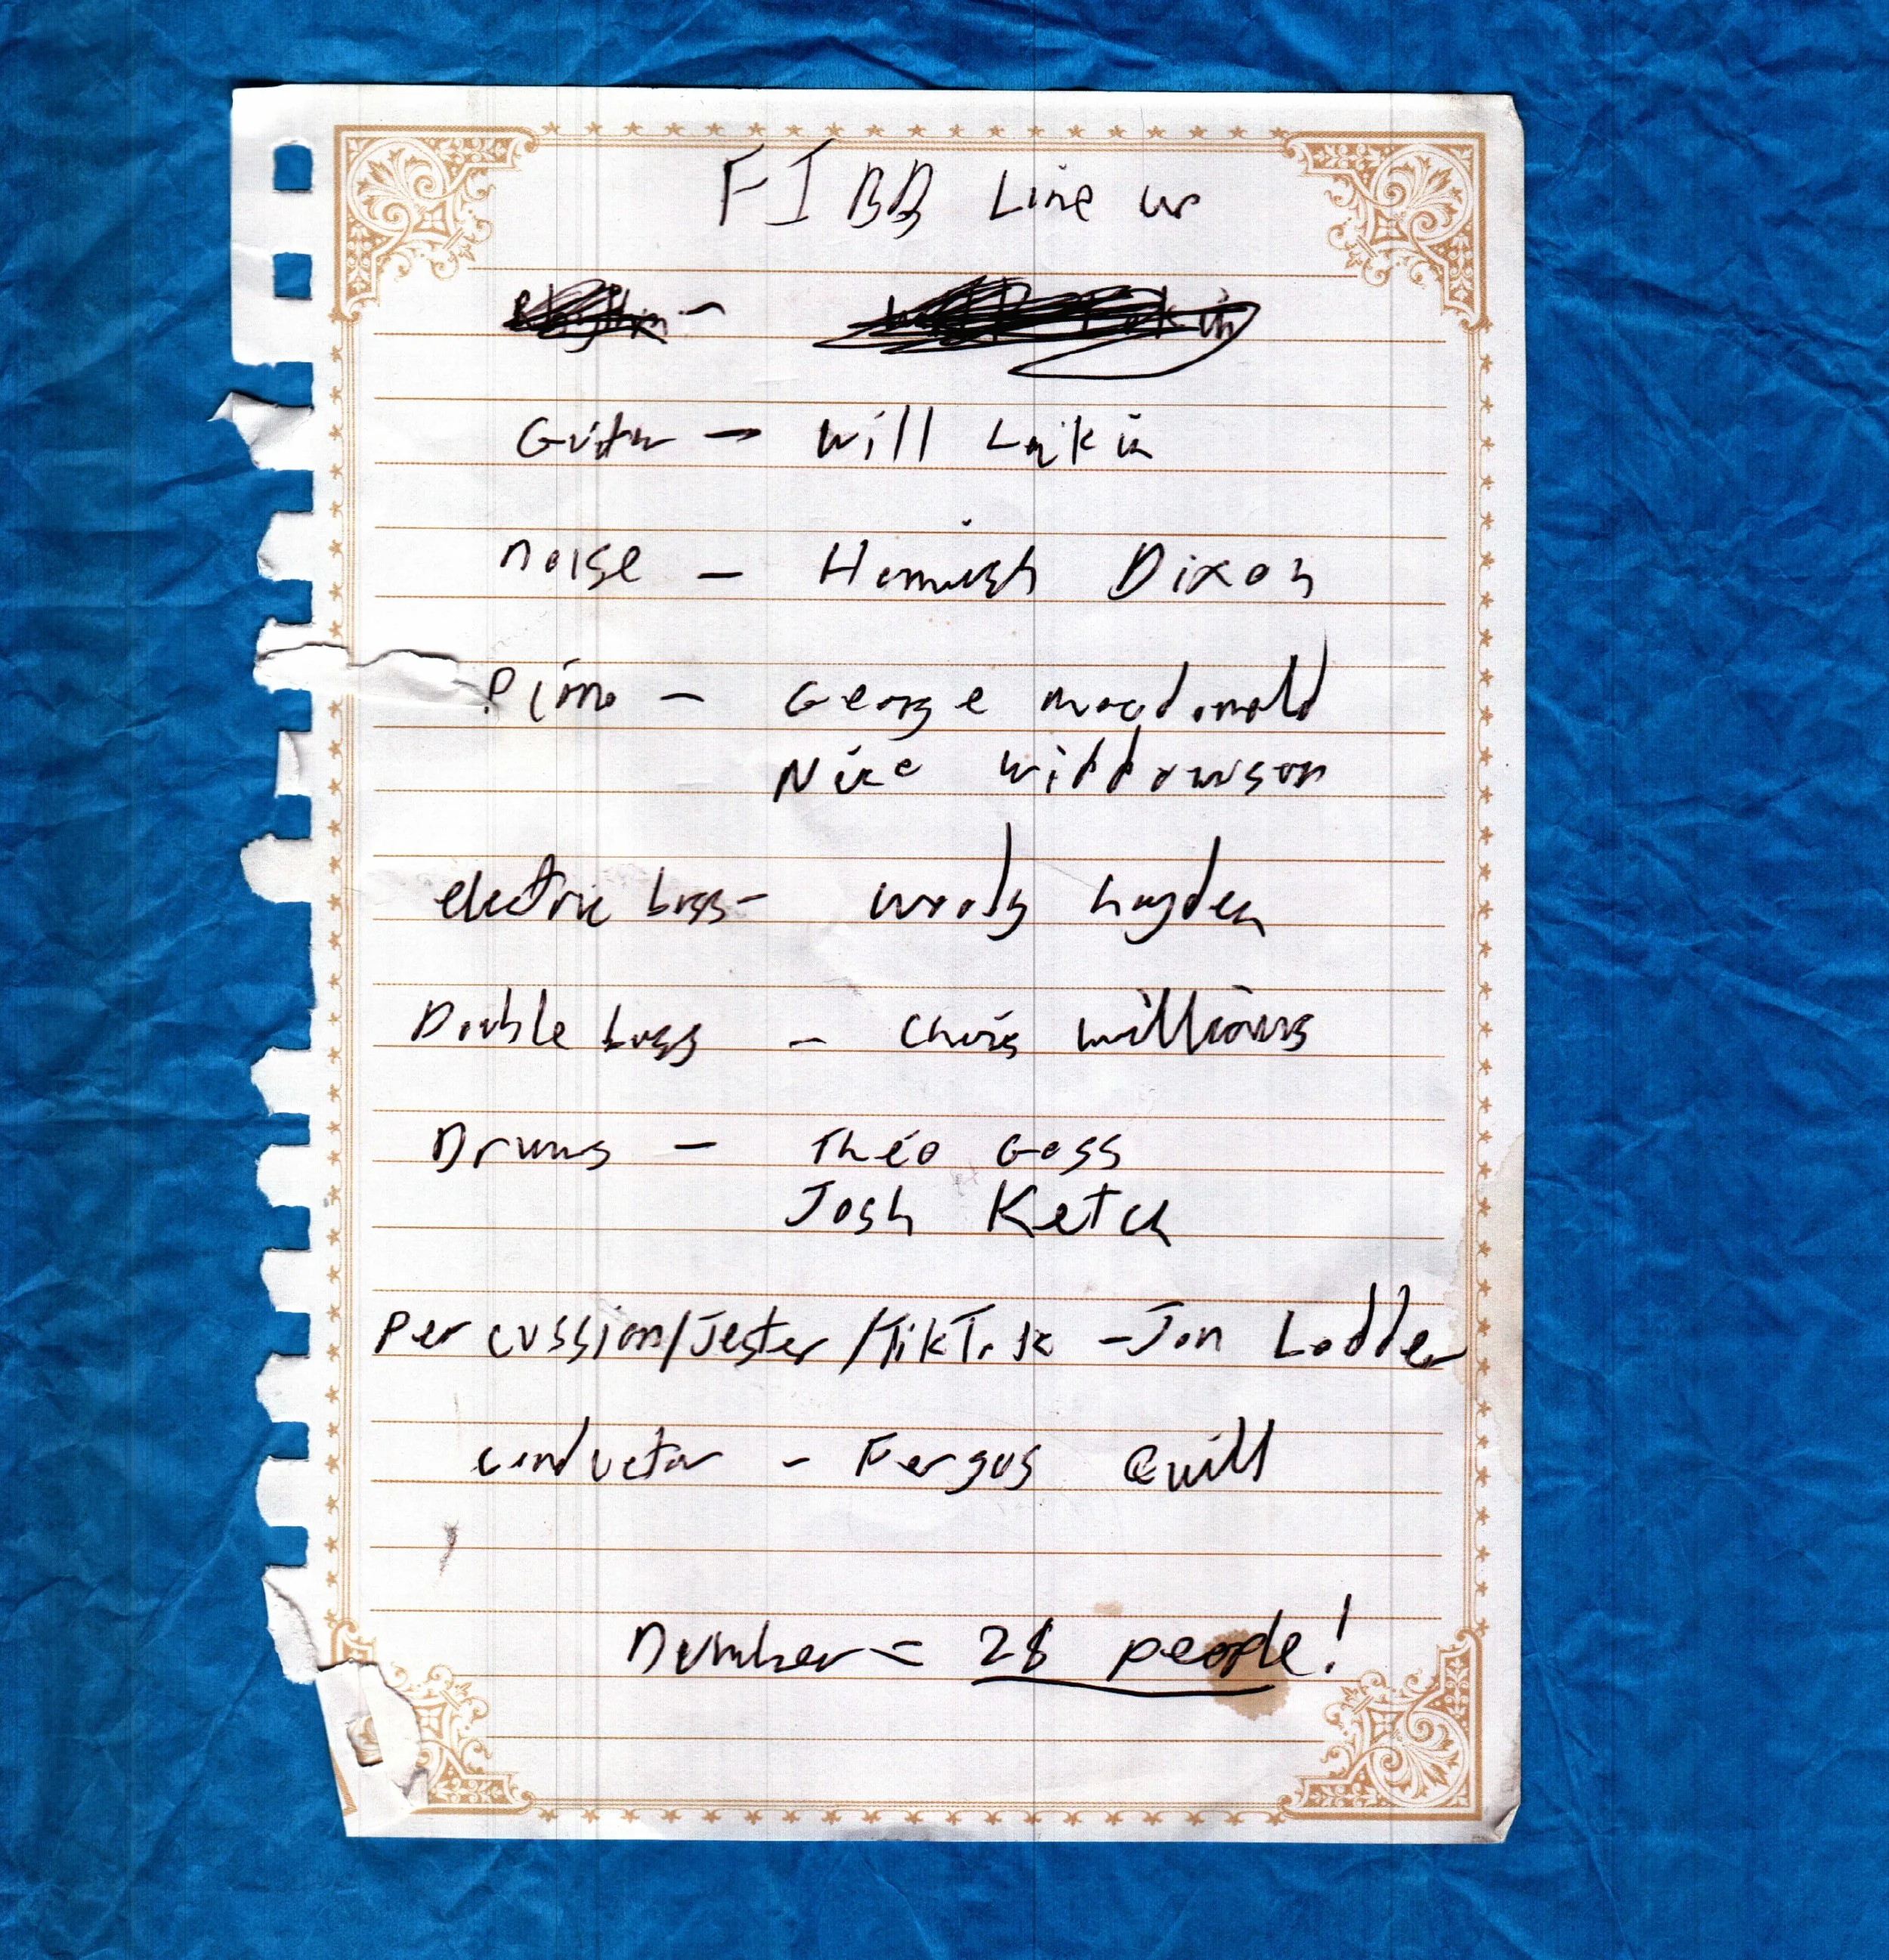 FIBB Line up
Guitar - Will Lakin
noise - Hamish Dixon
Piano - George macdonald
Nico Widdowson
electric bass - woody hayden
Double bass - Chris williams
Drums - Theo Goss
Josh Ketch
Percussion/Jester/TikTok - Jon Lodder
conductor - Fergus Quill
Number = 28 people!